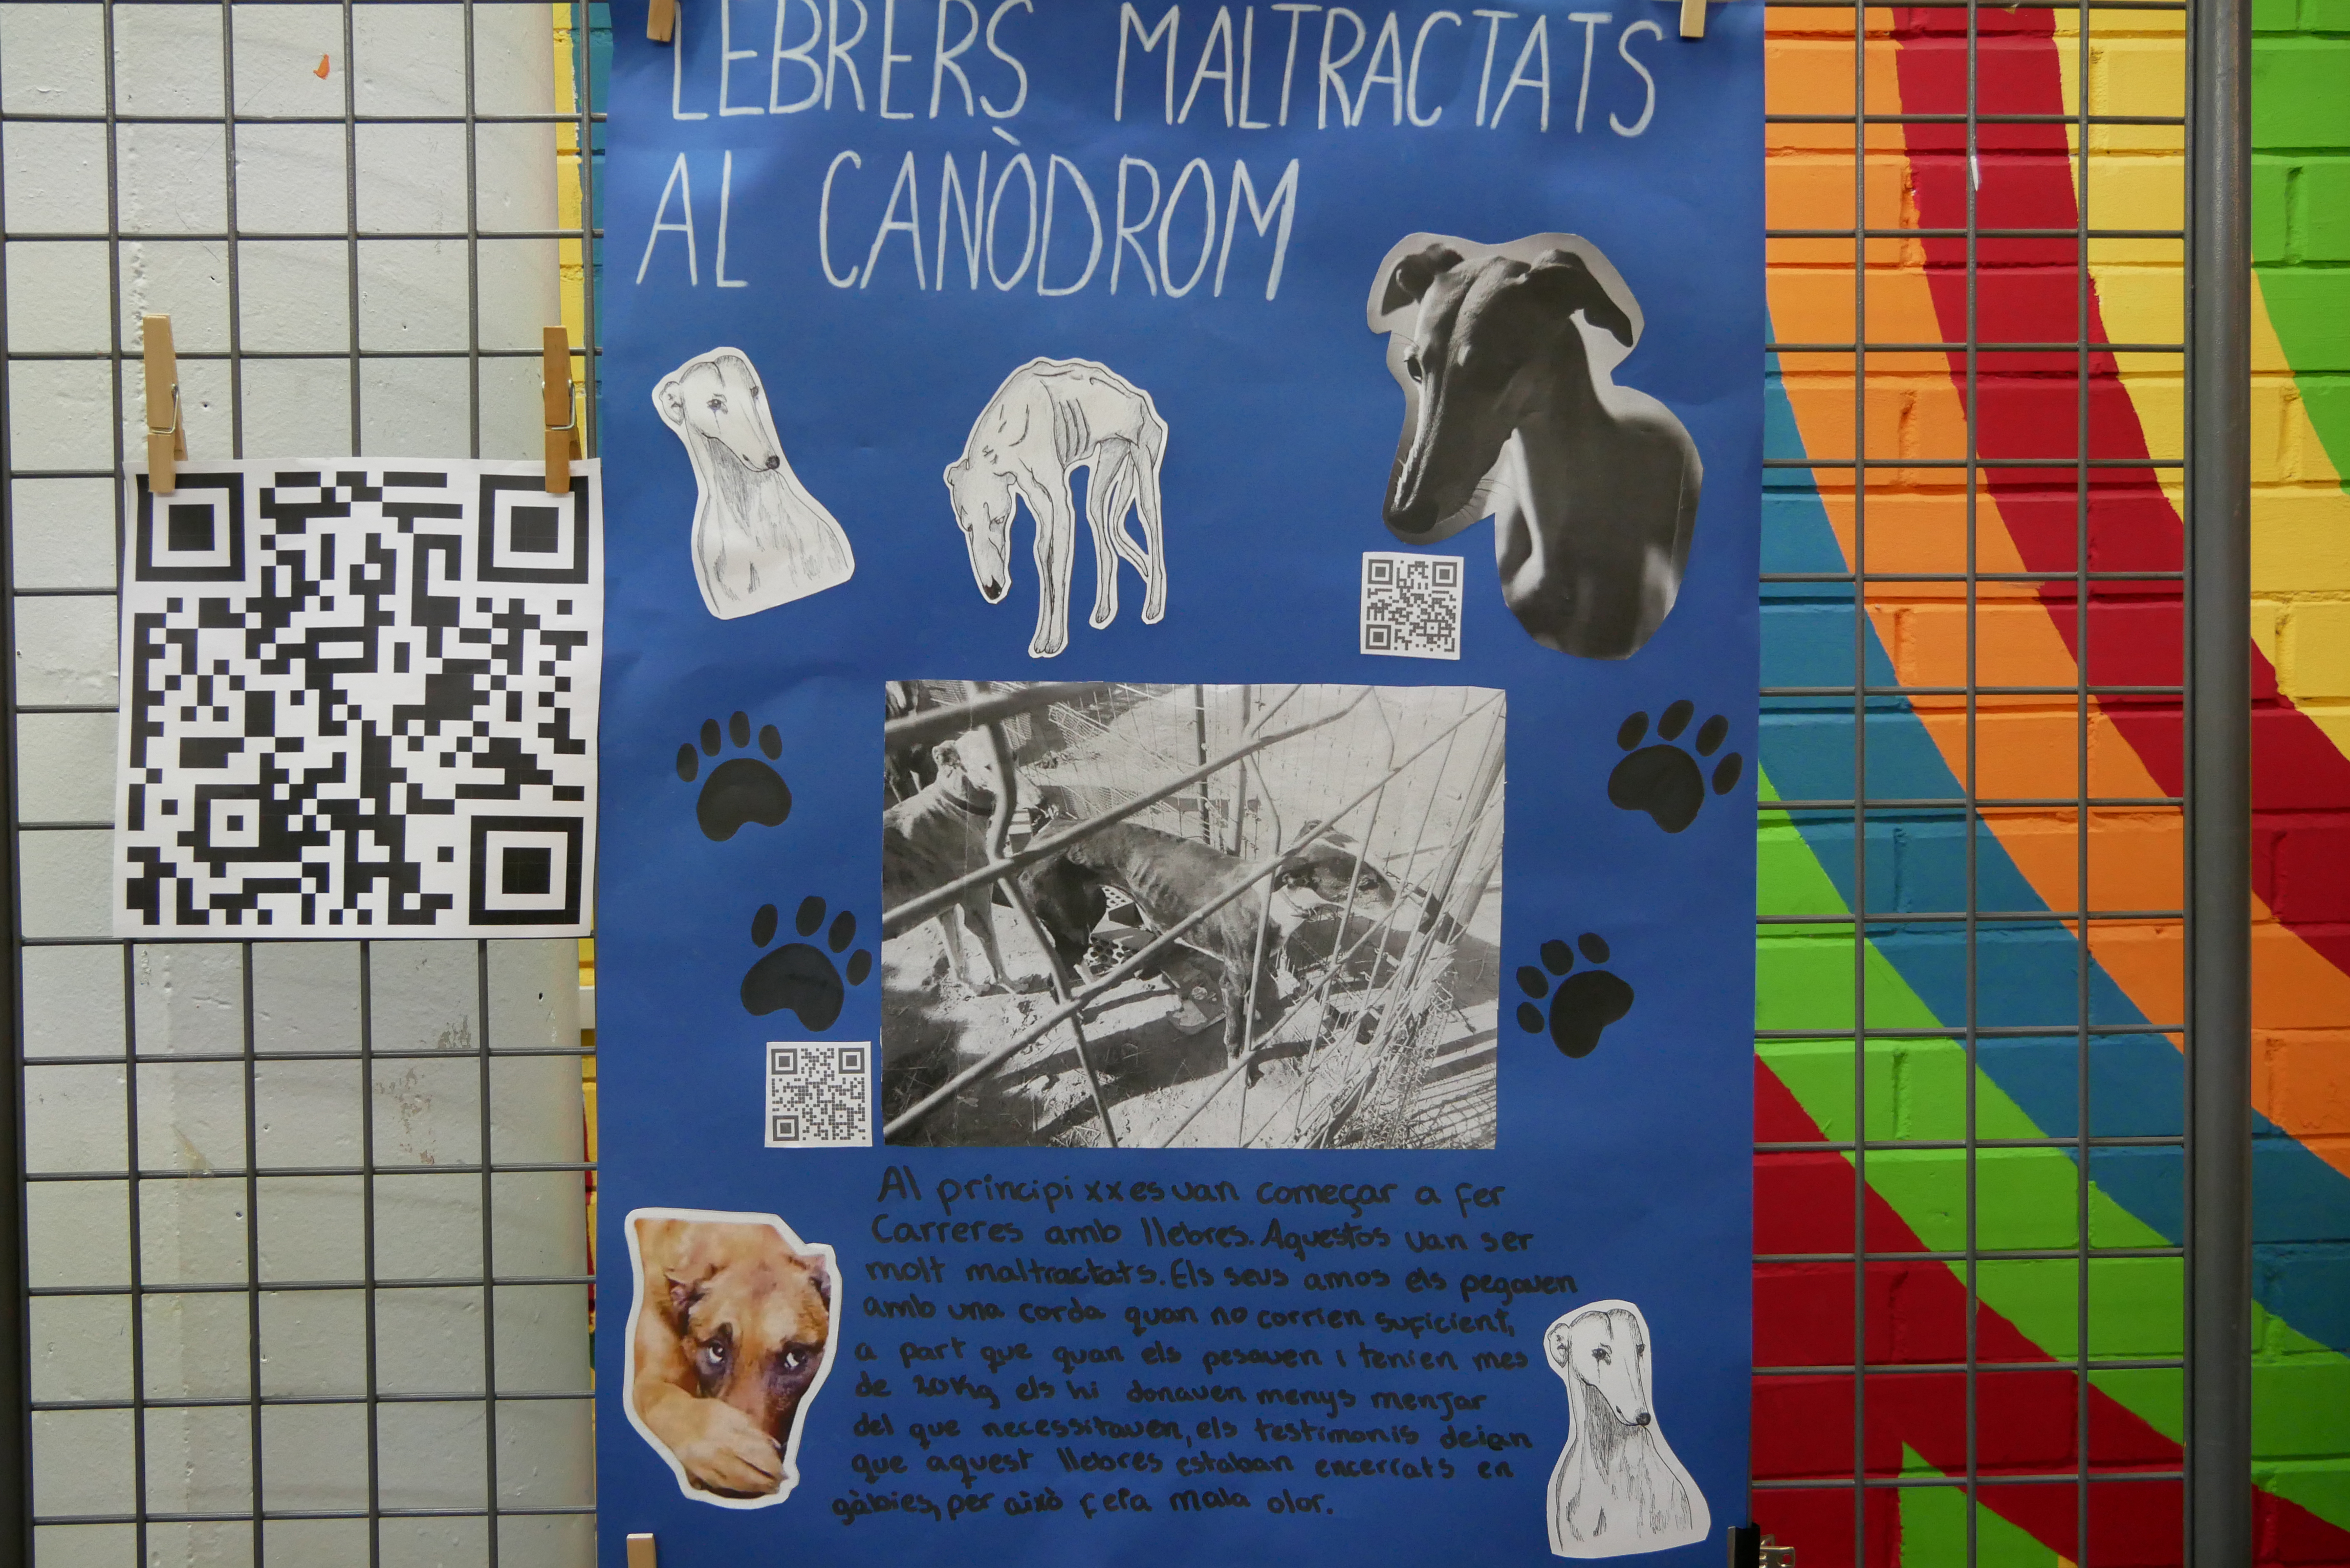 LEBRERS MALTRACTATS
AL CANÒDROM
Al principi xx es van começar a fer
Carreres amb llebres. Aquestos van ser
molt maltractats. Els seus amos els pegaven
amb una corda quan no corrien suficient,
a part que quan els pesaven i tenien mes
de 20Kg els hi donaven menys menjar
del que necessitaven, els testimonis deian
que aquest llebres estaban encerrats en
gàbies, per això feia mala olor.